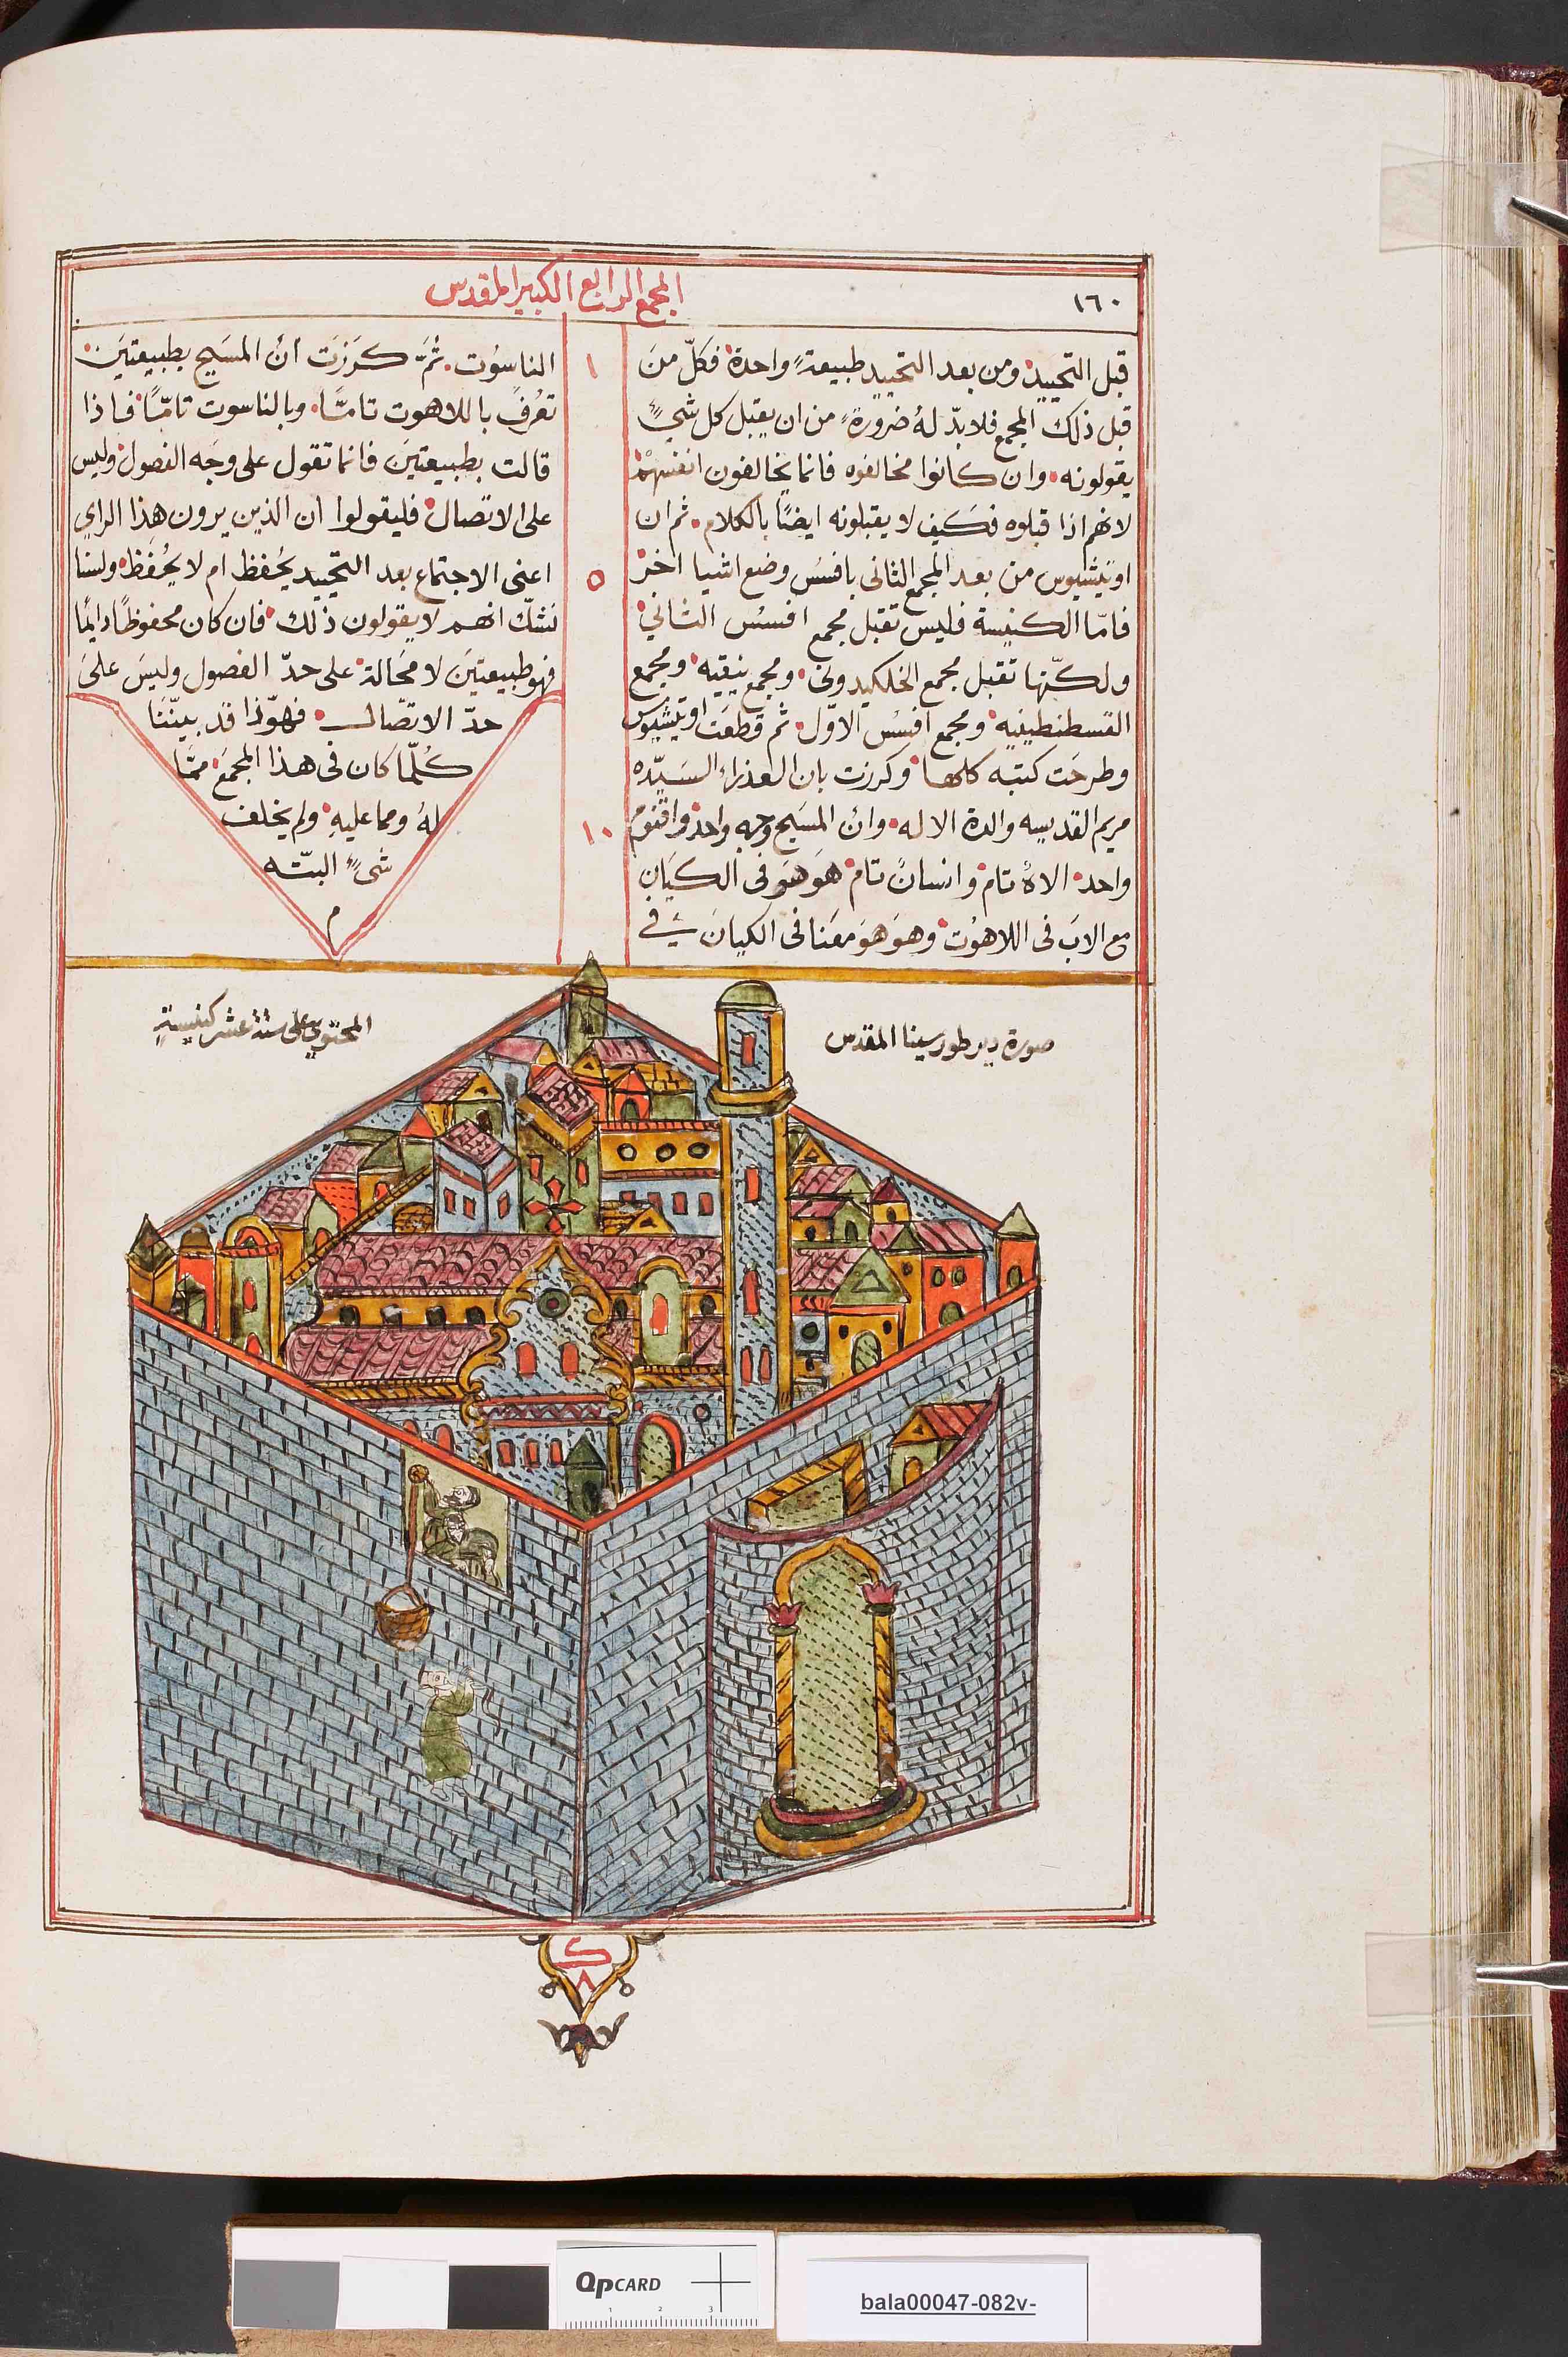 ١٦٠
المجمع الرابع الكبير المقدس
قبل التجييد ومن بعد التجييد طبيعةٍ واحدة فكلّ منَ
قبل ذلك المجمع فلا بدّ لهُ ضرورةٍ من ان يقبل كل شيءٍ
يقولونه وان كانوا مخالفوه فانما يخالفون انفسهمْ
لانهم اذا قبلوه فكيف لا يقبلونه ايضًا بالكلام ثم ان
اوتيشيوس من بعد المجمع الثاني بافسس وضع اشيا اخر
فامّا الكنيسة فليس تقبل مجمع افسس الثاني
ولكنّها تقبل مجمع الخلكيدوني ومجمع نيقيه ومجمع
القسطنطينيه ومجمع افسس الاوّل ثم قطعَت اوتيشيوس
وطرحَت كتبه كلها وكرزت بان العذراء السيّده
مريم القديسه والدة الاله وانّ المسَيح وجهٍ واحدٍ واقنومٍ
واحد الاهٌ تام وانسانٌ تام هوَ هوَ في الكيَانِ
مع الابَ في اللاهوُت وهوَ هوَ معَنا في الكيانَ في
١
٥
١٠
الناسوُت ثمَّ كرَزَت انّ المسَيح بطبيعتيَن
تعُرفَ باللاهوت تامًّا وبالناسوت تامّاً فاذا
قالت بطبيعتيَن فانما تقول على وجَه الفصول وليس
على الاتصال فليقولوا ان الذين يرون هذا الراي
اعني الاجتماع بعد التجييد يحُفظ ام لا يحُفَظ ولسنا
نشكّ انهم لا يقولون ذلك فان كان محفوظاً دايمًا
فهو طبيعتيَن لا محَالة على حدّ الفصول وليسَ على
حدّ الاتصّال فهوّذا قد بيّنّا
كُلّما كان في هذا المجمَع ممَّا
لهُ ومما عليهِ ولم يخلف
شيءٍ البتّه
م
صورة دير طور سينا المقدس
المحتوي على ستة عشر كنيسةٍ
ك
٨
QpCARD
1 2 3
bala00047-082v-